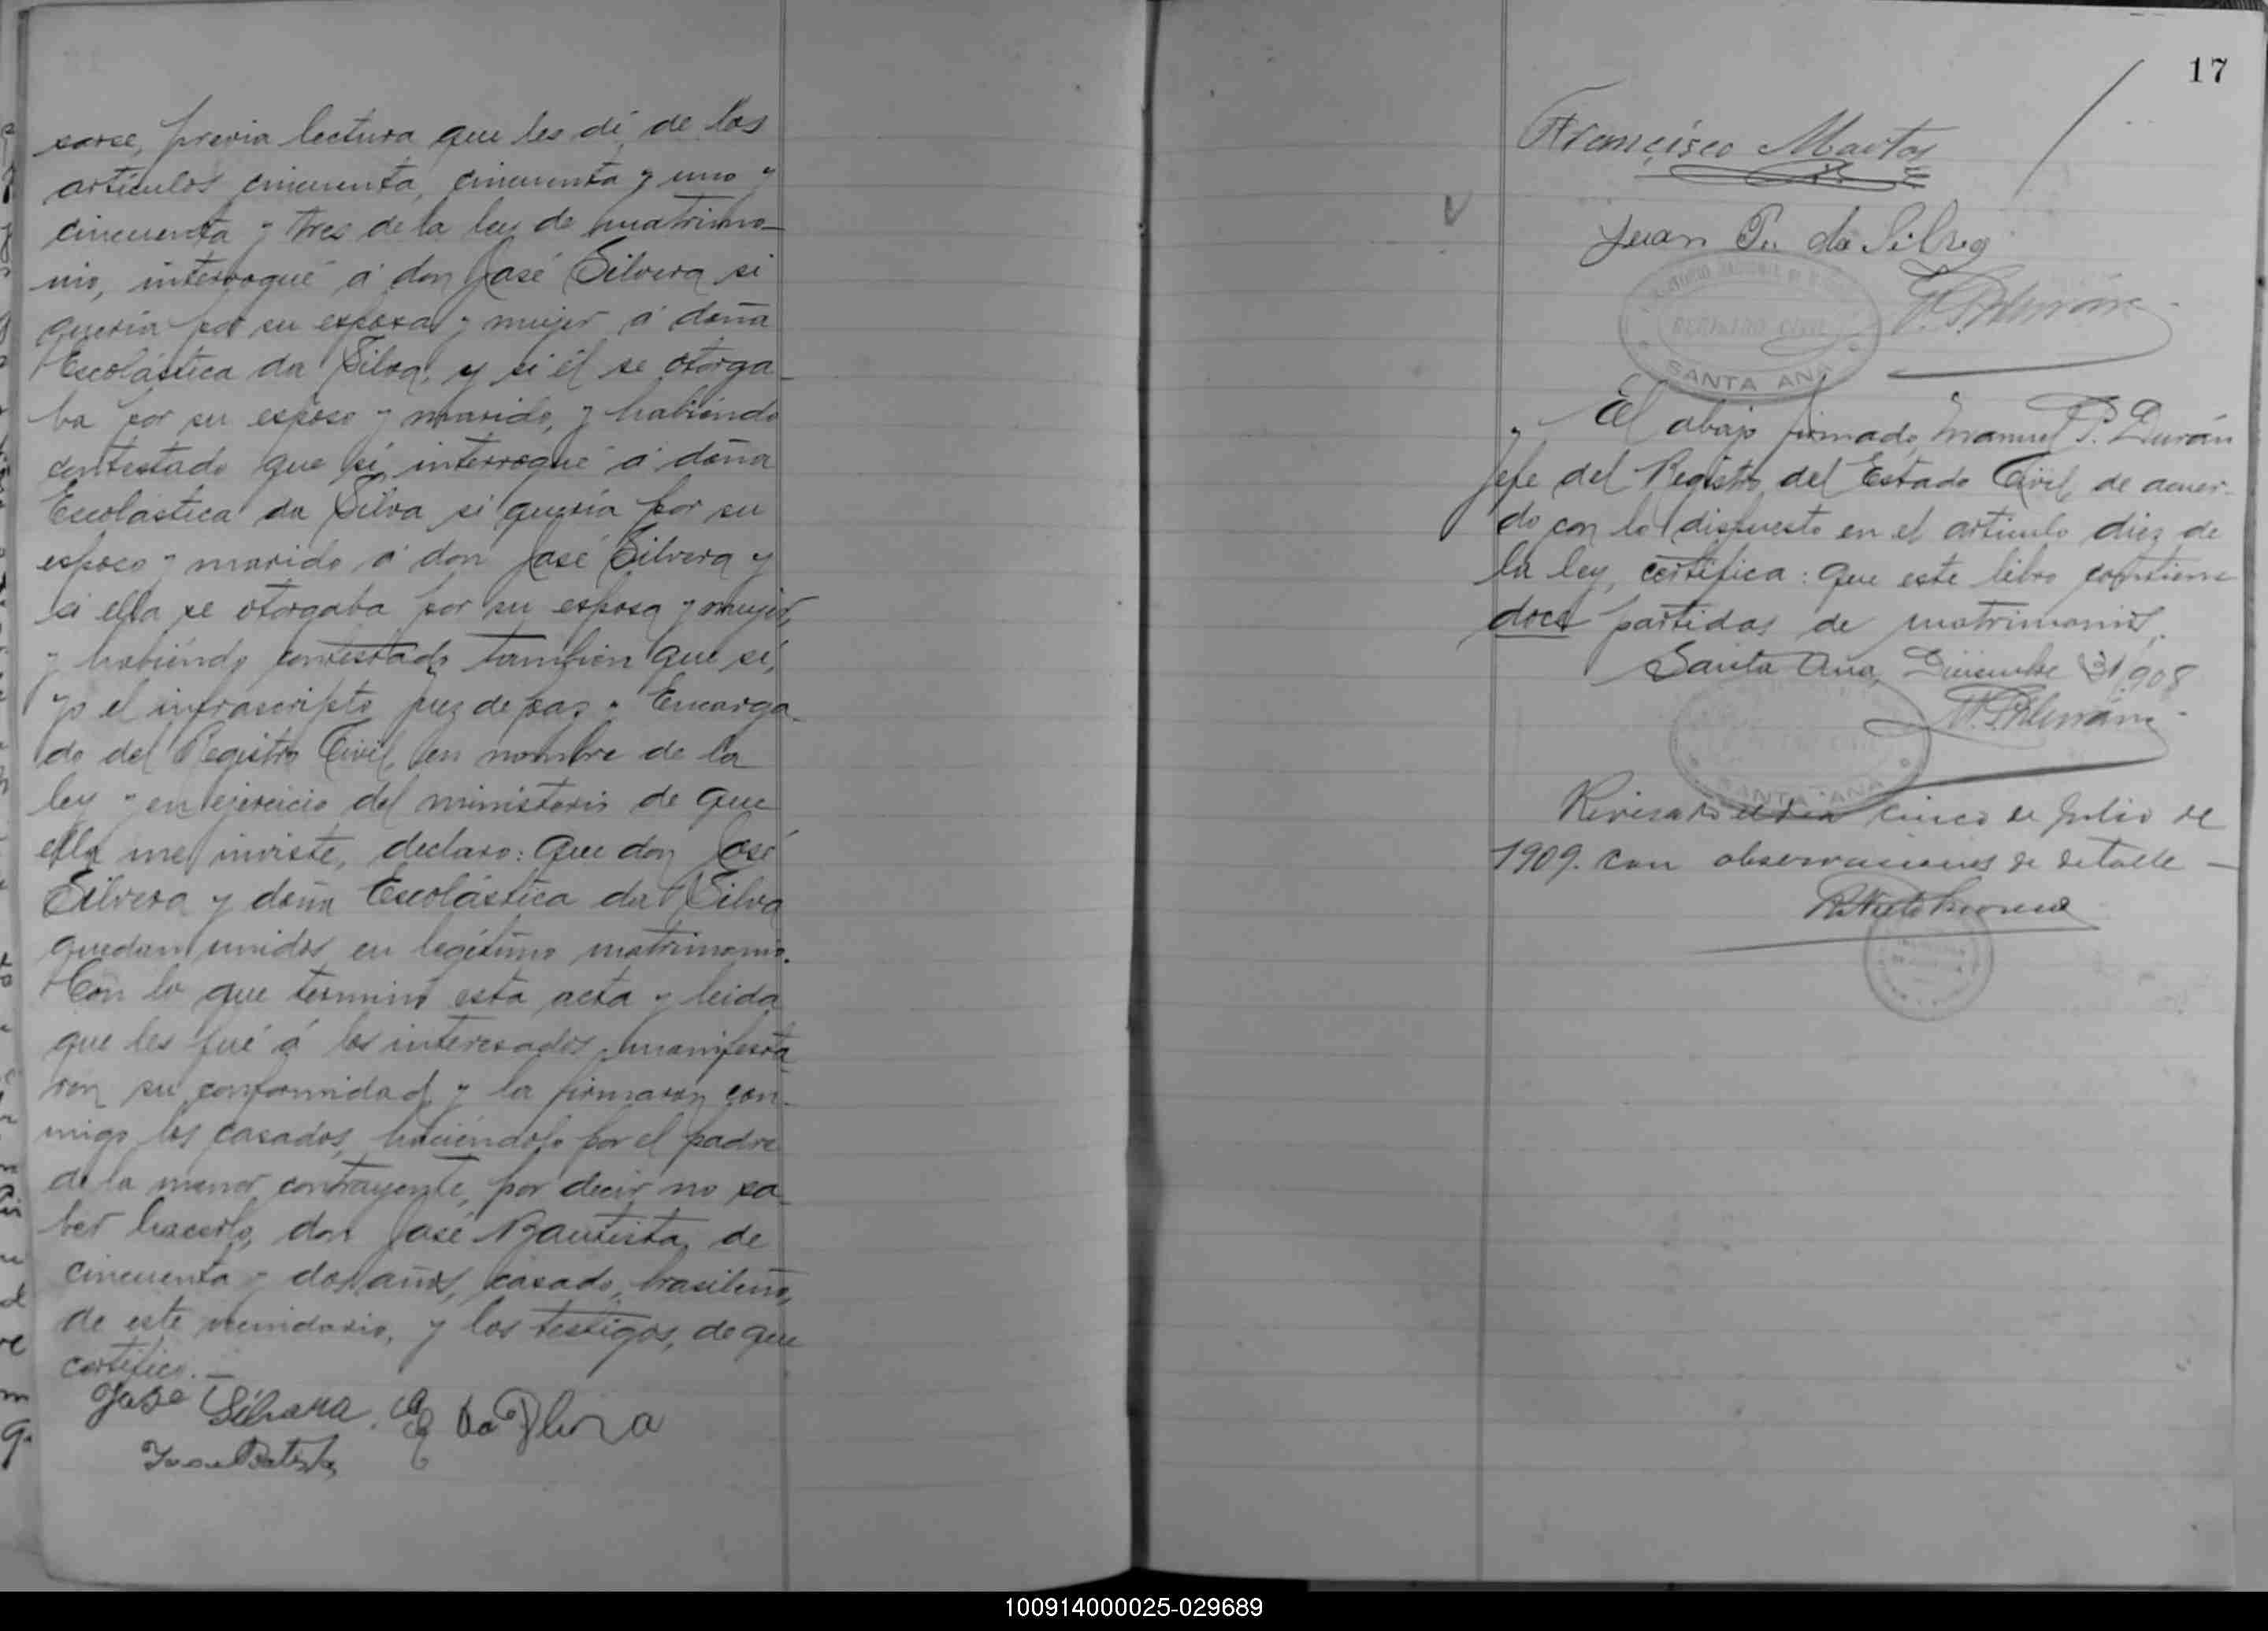 sarse, previa lectura que les dí, de los
artículos cincuenta, cincuenta y uno y
cincuenta y tres de la ley de matrimo-
nio, interrogué á don José Silvera si
quería por su esposa y mujer á doña
Escolástica da Silva, y si él se otorga-
ba por su esposo y marido, y habiendo
contestado que sí, interrogué á doña
Escolástica da Silva si quería por su
esposo y marido á don José Silvera y
si ella se otorgaba por su esposa y mujer,
y habiendo contestado tambien que sí,
yo el infrascripto juez de paz y Encarga-
do del Registro Civil, en nombre de la
ley y en ejercicio del ministerio de que
ella me inviste, declaro: que don José
Silvera y doña Escolástica da Silva
quedan unidos en legítimo matrimonio.
Con lo que terminó esta acta y leida
que les fué á los interesados, manifesta-
ron su conformidad y la firmaron con-
migo los casados, haciéndolo por el padre
de la menor contrayente, por decir no sa-
ber hacerlo, don José Bautista, de
cincuenta y dos años, casado, brasileño,
de este vecindario, y los testigos, de que
certifico.—
José Silvera. E da Silva
Batista
17
Francisco Martos
Juan P. da Silva
REGISTRO CIVIL
SANTA ANA
El abajo firmado, Manuel P. Durán
Jefe del Registro del Estado Civil, de acuer-
do con lo dispuesto en el artículo diez de
la ley, certifica: que este libro contiene
doce partidas de matrimonios.
Santa Ana, Diciembre 31 1908
M. P. Durán
SANTA ANA
Revisado el dia cinco de Julio de
1909. con observaciones de detalle —
100914000025-029689